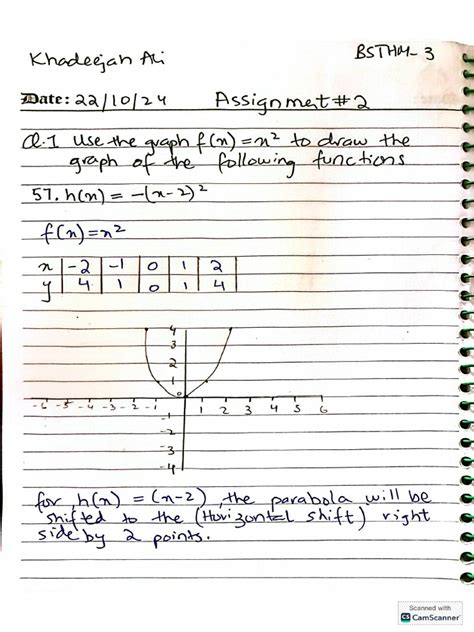 Khadeejah Ali
BSTHM-3
Date: 22/10/24 Assignmet #2
Q.1 Use the graph f(x)=x² to draw the
graph of the following functions
57. h(x) = -(x-2)²
f(x)=x²
x -2 -1 0 1 2
y 4 1 0 1 4
4
3
2
1
0
-6 -5 -4 -3 -2 -1 1 2 3 4 5 6
-1
-2
-3
-4
for h(x) = (x-2), the parabola will be
shifted to the (Horizontal shift) right
side by 2 points.
Scanned with
CS CamScanner